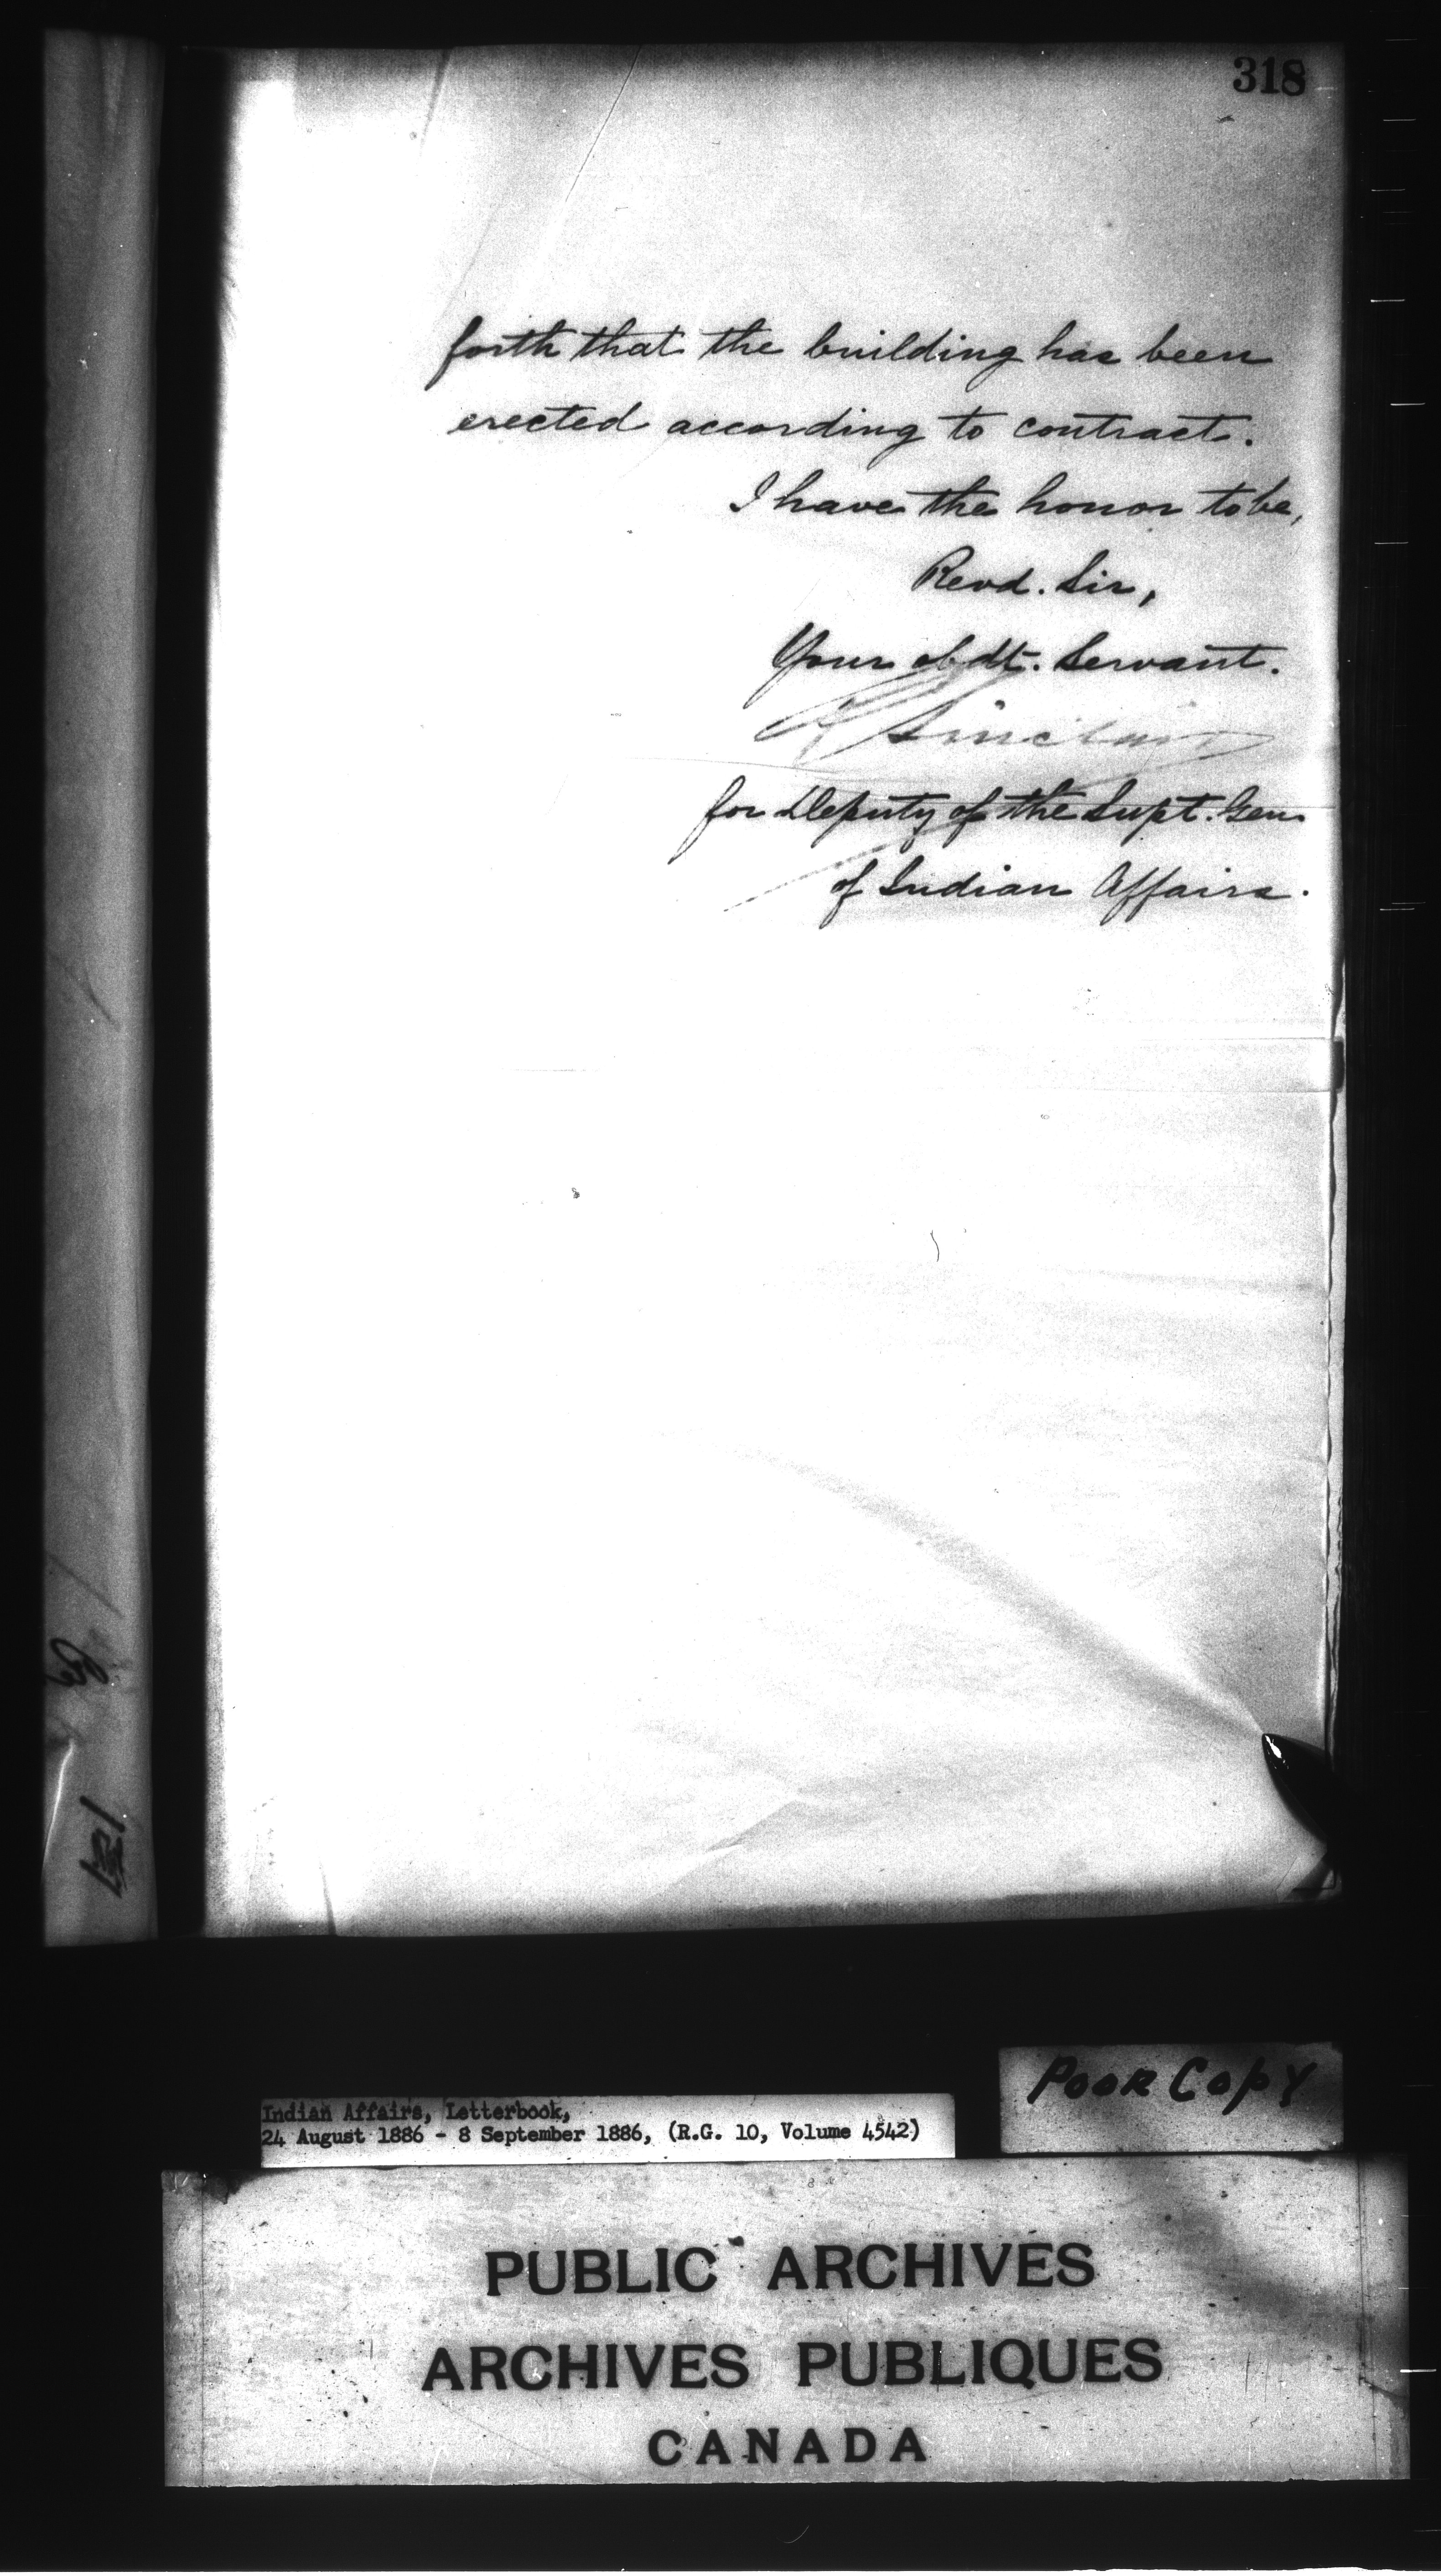 318
forth that the building has been
erected according to contract.
I have the honor to be,
Revd. Sir,
Your obdt. Servant.
Sinclair
for Deputy of the Supt. Gen.
of Indian Affairs.
Poor Copy
Indian Affairs, Letterbook,
24 August 1886 - 8 September 1886, (R.G. 10, Volume 4542)
PUBLIC ARCHIVES
ARCHIVES PUBLIQUES
CANADA